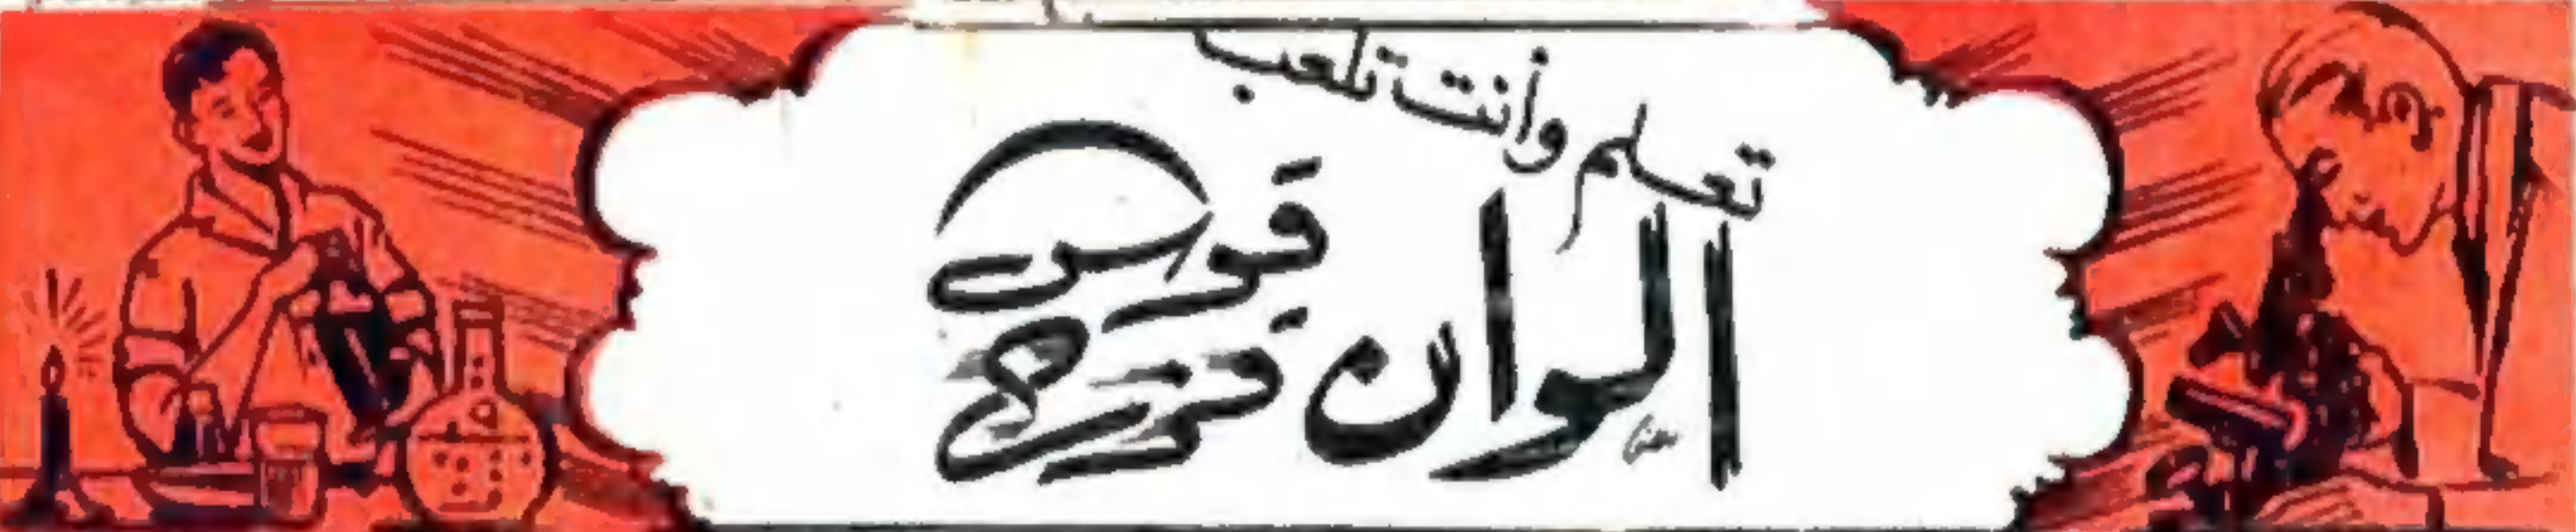 تعلم وأنت تلعب
الوان قوس
قزح